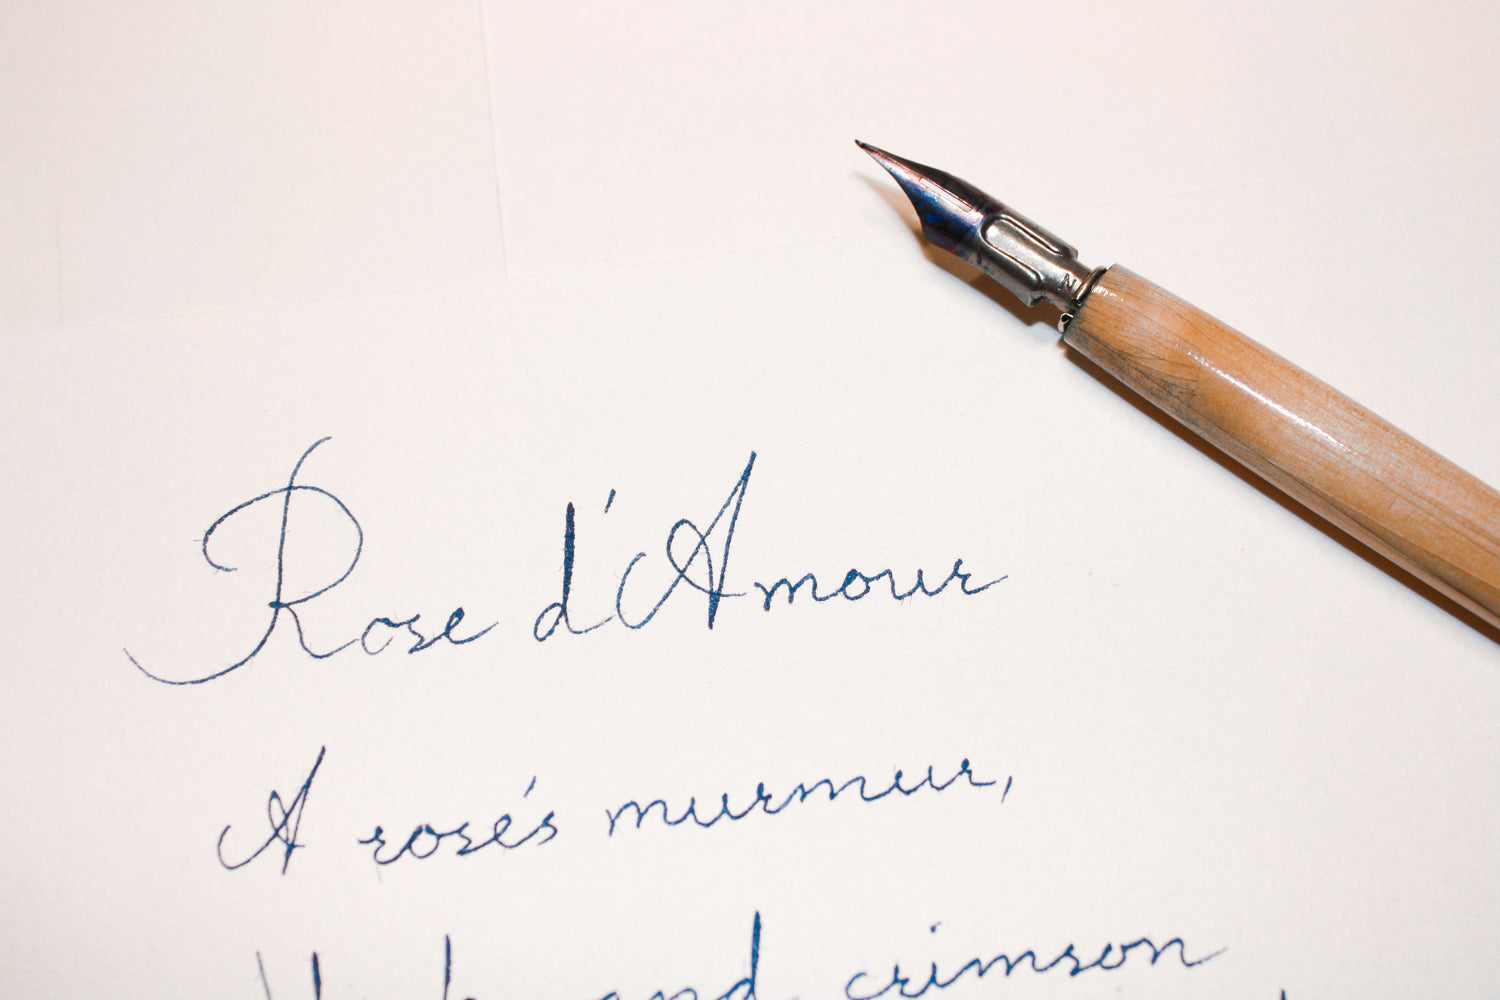 Rose d'Amour
A rose's murmur,
and crimson